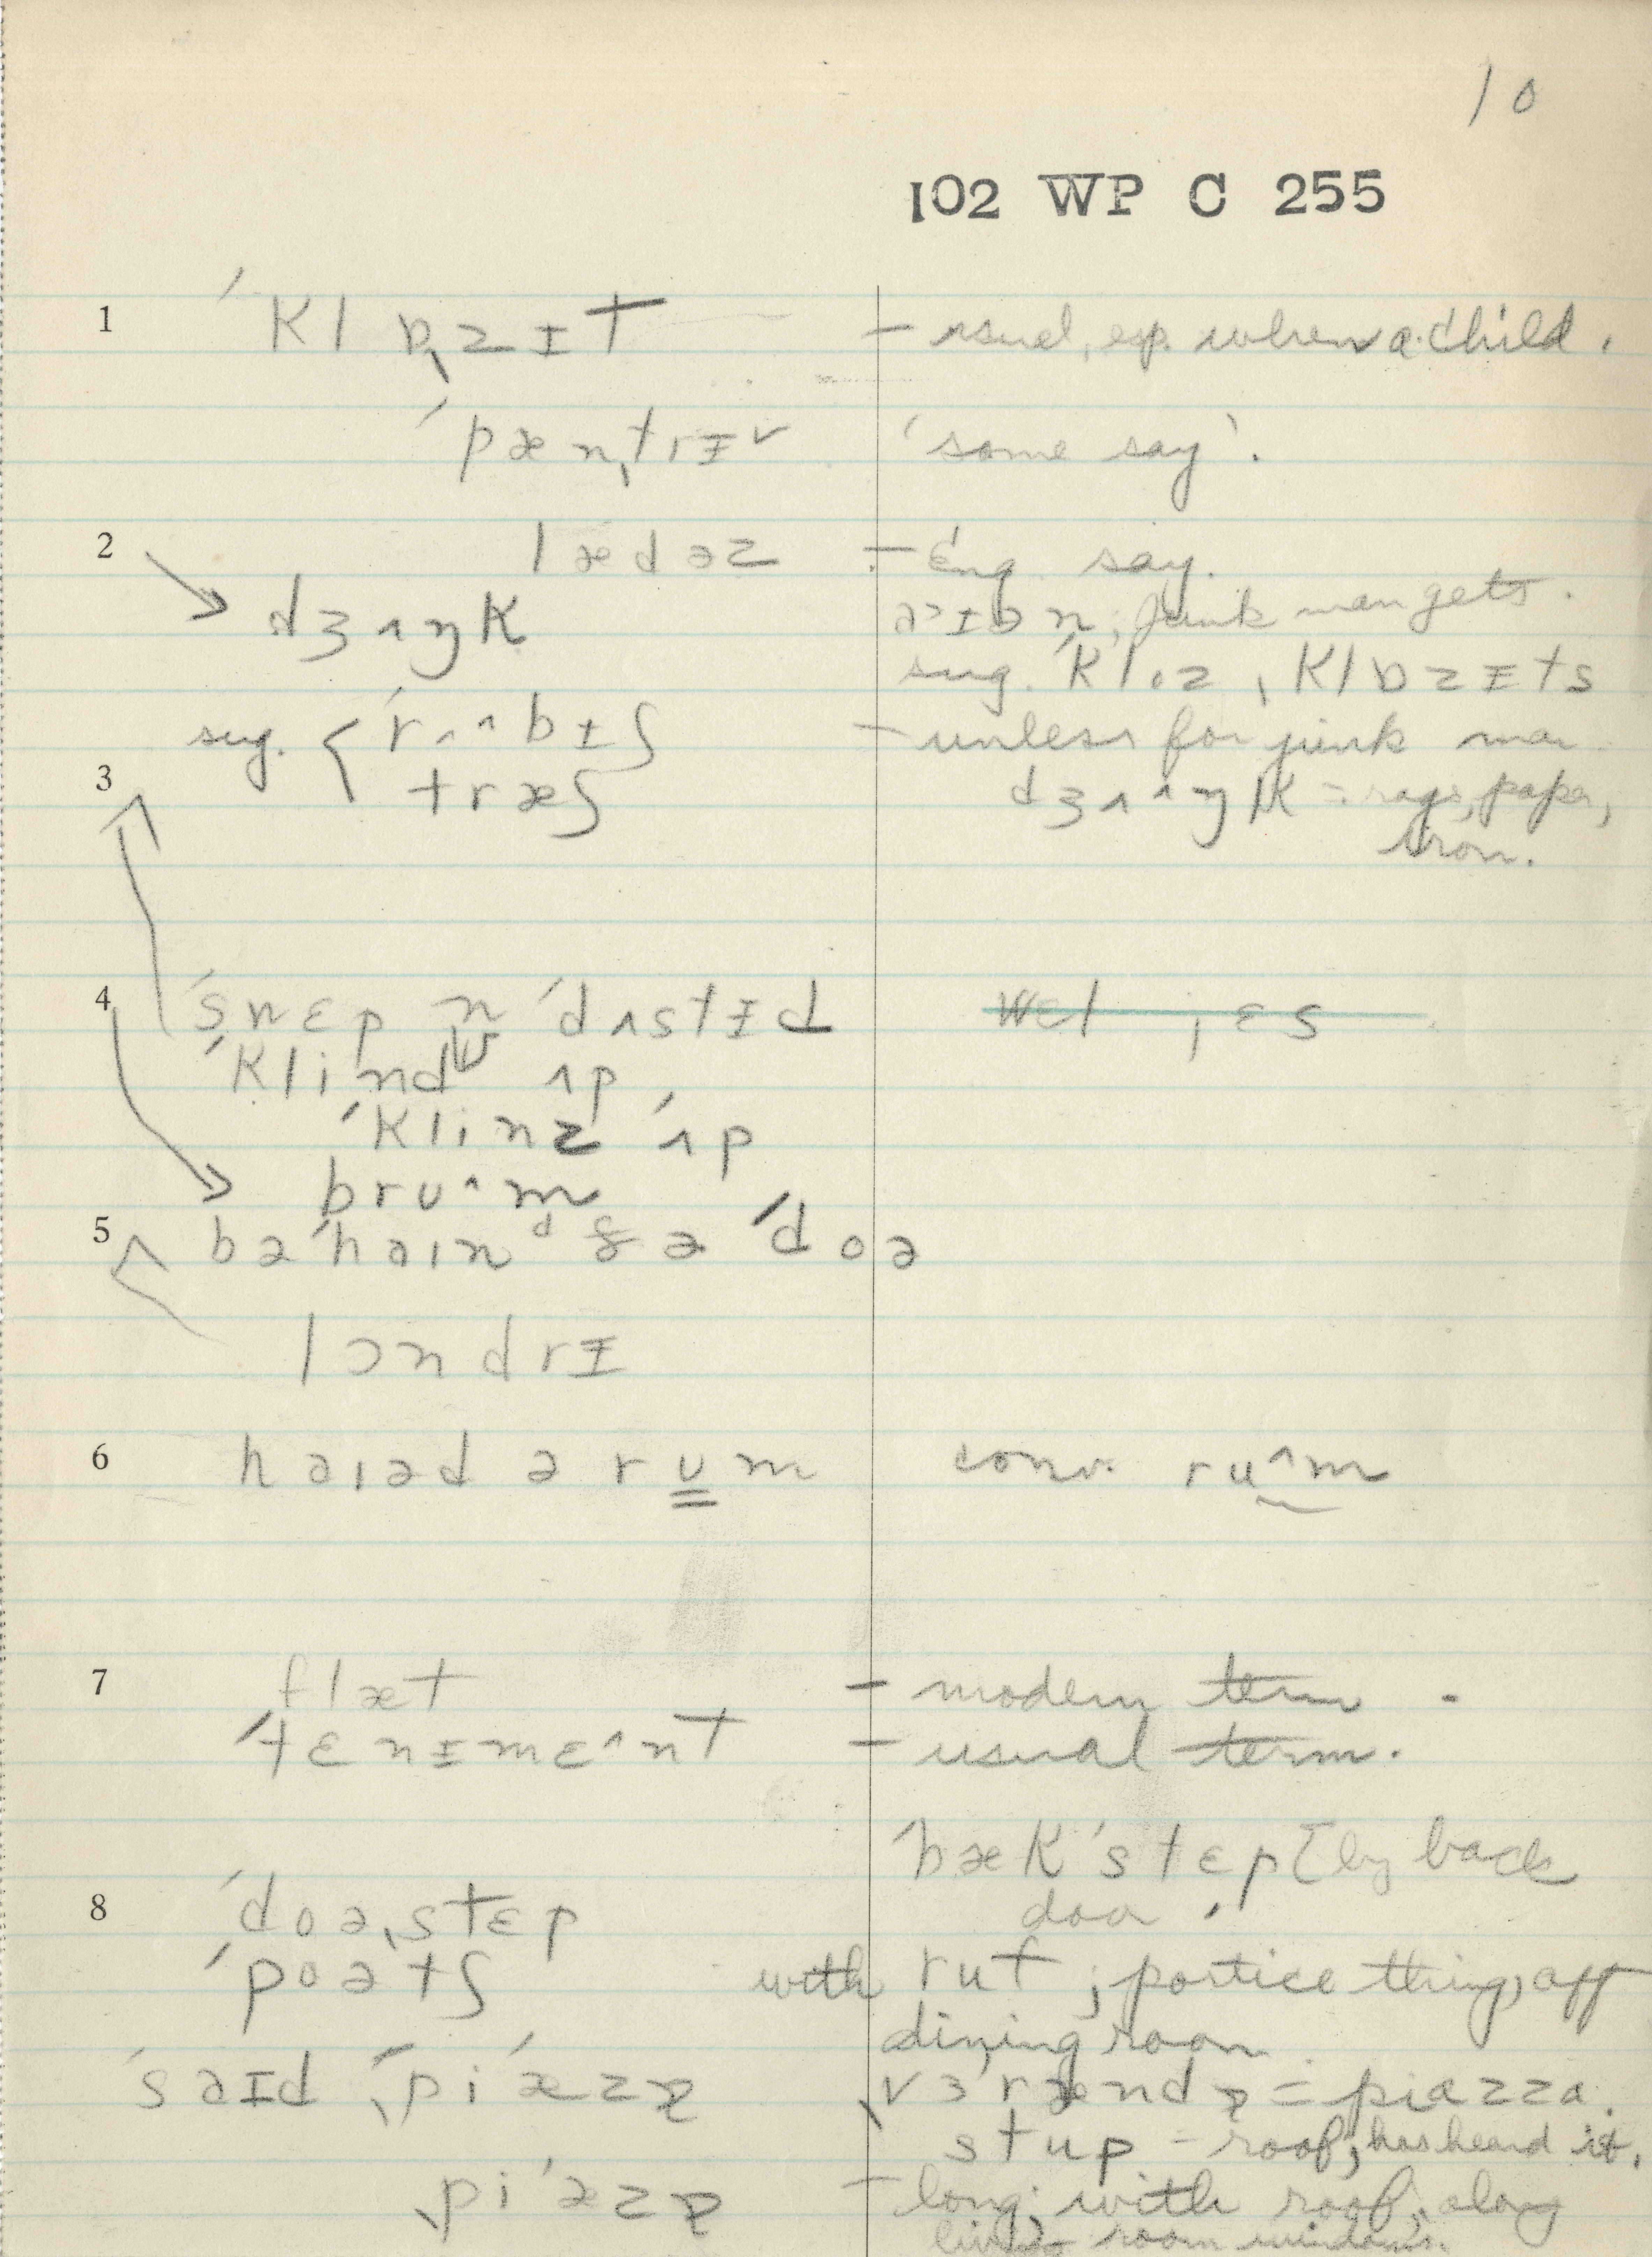 10
102 WP C 255
1 ˈklɒ̜zɪT – usual, esp. when a child.
ˈpænˌtrɪ˅ 'some say'.
2 lædəz – Eng. say.
dʒʌŋk junk man gets.
sug. ˈkloz, klɒzɪts
sug. { ˈrʌ^bɪʃ – unless for junk man
3 træʃ dʒʌ^ŋk = rags, paper,
iron.
4 ˈswɛp n ˈdʌstɪd
ˈklind ʌp
ˈklinz ˈʌp
brʊ^m
5 bəˈhaɪnᵈ ðə ˈdoə
lɔndrɪ
6 haɪəd ə rʊm conv. ru^m
7 flæt – modern term.
ˈtɛnɪmɛ^nt – usual term.
ˈbækˈstɛp [by back
8 ˈdoəˌstɛp door.
ˈpoətʃ with ruf; portico thing, off
dining room.
ˈsaɪd ˌpiˈæzɐ vɜˈrændɐ = piazza.
stup – roof; has heard it.
ˌpiˈæzɐ – long; with roof; along
living room windows.